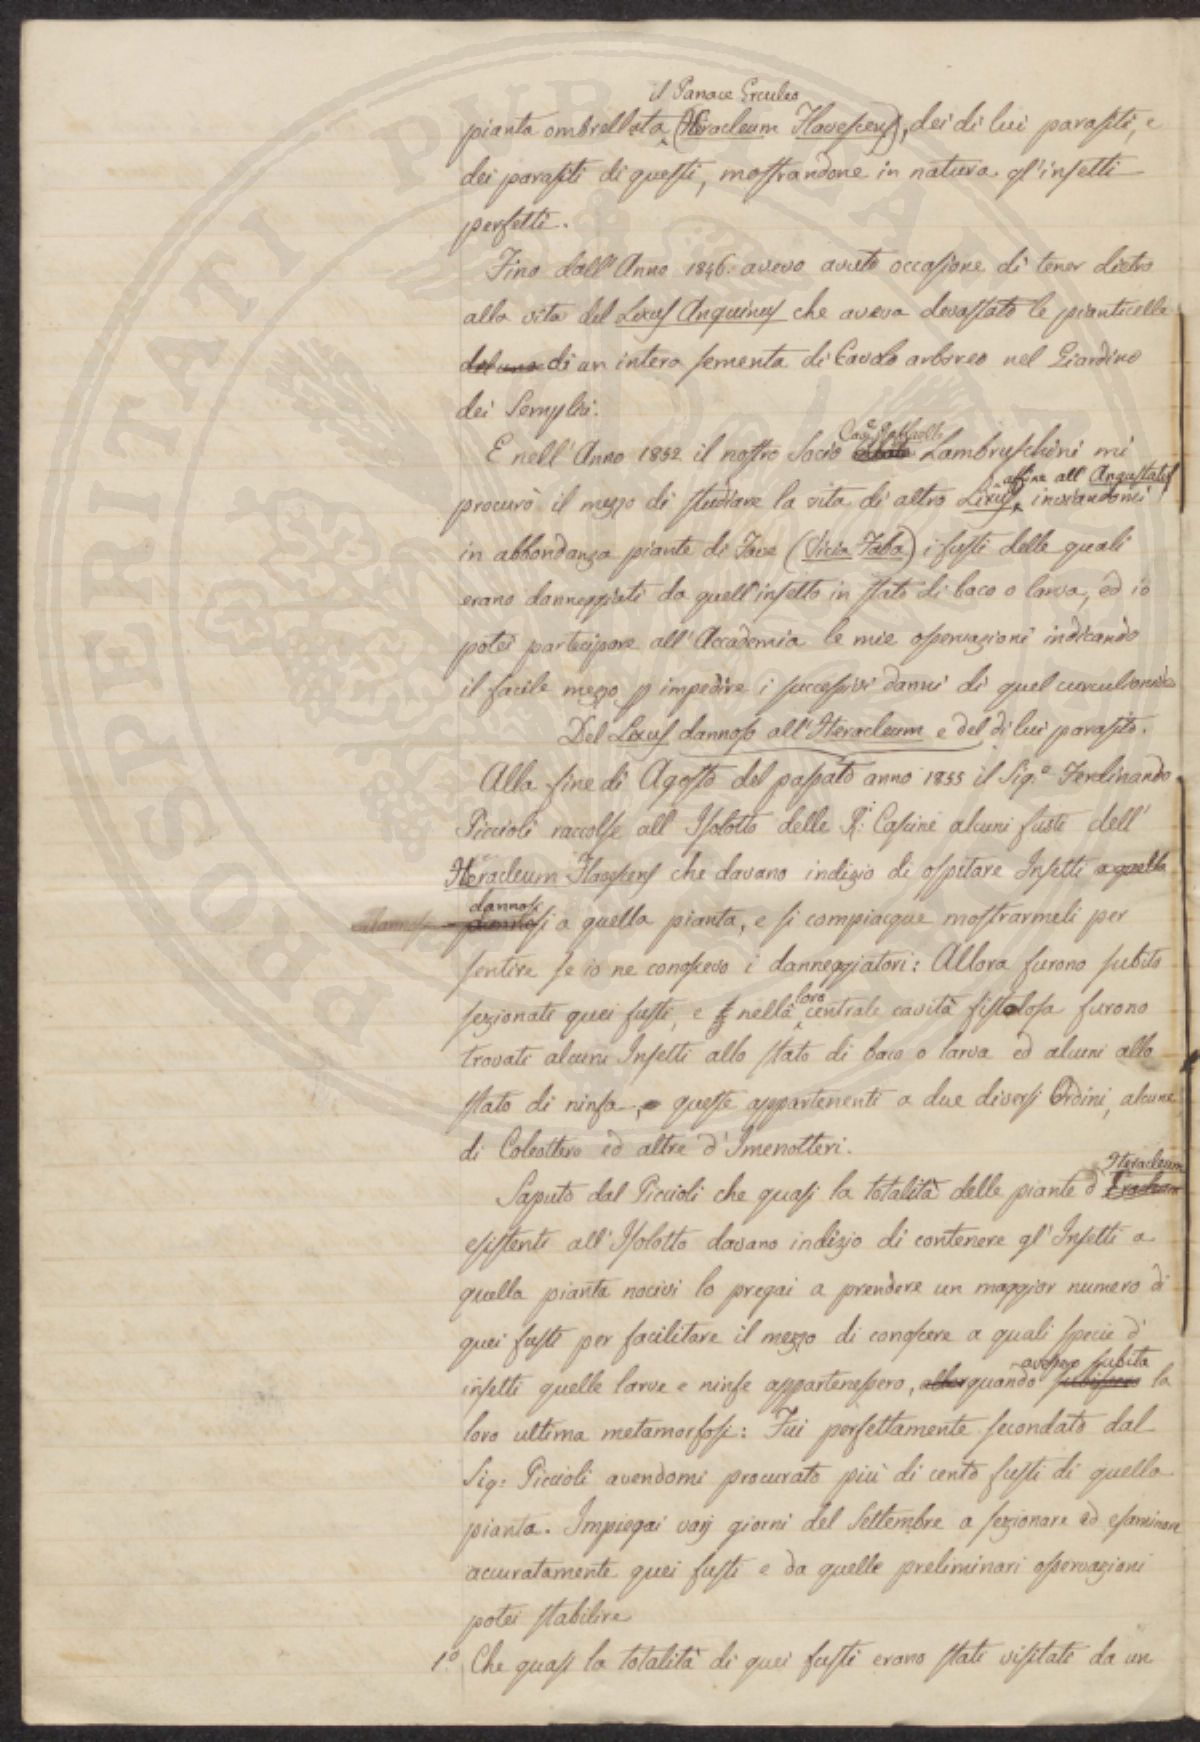 il Panace Erculeo
pianta ombrellata (Heracleum Flavescens), dei di lui parasiti, e
dei parasiti di questi, mostrandone in natura gl'insetti
perfetti.
Fino dall'Anno 1846. avevo avuto occasione di tener dietro
alla vita del Lixus Anguinus che aveva devastato le pianticelle
del una di un intera sementa di Cavolo arboreo nel Giardino
dei Semplici.
E nell'Anno 1852 il nostro Socio Cav. Raffaello Lambruschini mi
procurò il mezzo di studiare la vita di altro Lixus affine all'Angustatus inviandomi
in abbondanza piante di Fave (Vicia Faba) i fusti delle quali
erano danneggiati da quell'insetto in stato di baco o larva, ed io
potei partecipare all'Accademia le mie osservazioni indicando
il facile mezzo p impedire i successivi danni di quel curculionide
Del Lixus dannoso all'Heracleum e del di lui parasito.
Alla fine di Agosto del passato anno 1855 il Sig.e Ferdinando
Piccioli raccolse all'Isolotto delle R.i Cascine alcuni fusti dell'
Heracleum Flavescens che davano indizio di ospitare Insetti a quella
dannosi
dannosi a quella pianta, e si compiacque mostrarmeli per
sentire se io ne conoscevo i danneggiatori: Allora furono subito
sezionati quei fusti, e nella loro centrale cavità fistolosa furono
trovati alcuni Insetti allo stato di baco o larva ed alcuni allo
stato di ninfa, queste appartenenti a due diversi Ordini, alcune
di Coleottero ed altre d'Imenotteri.
Saputo dal Piccioli che quasi la totalità delle piante d' Heracleum
esistenti all'Isolotto davano indizio di contenere gl'Insetti a
quella pianta nocivi lo pregai a prendere un maggior numero di
quei fusti per facilitare il mezzo di conoscere a quali specie d'
insetti quelle larve e ninfe appartenessero, quando avessero subita la
loro ultima metamorfosi: Fui perfettamente secondato dal
Sig: Piccioli avendomi procurato più di cento fusti di quella
pianta. Impiegai varj giorni del Settembre a sezionare ed esaminare
accuratamente quei fusti e da quelle preliminari osservazioni
potei stabilire
1.o Che quasi la totalità di quei fusti erano stati visitati da un